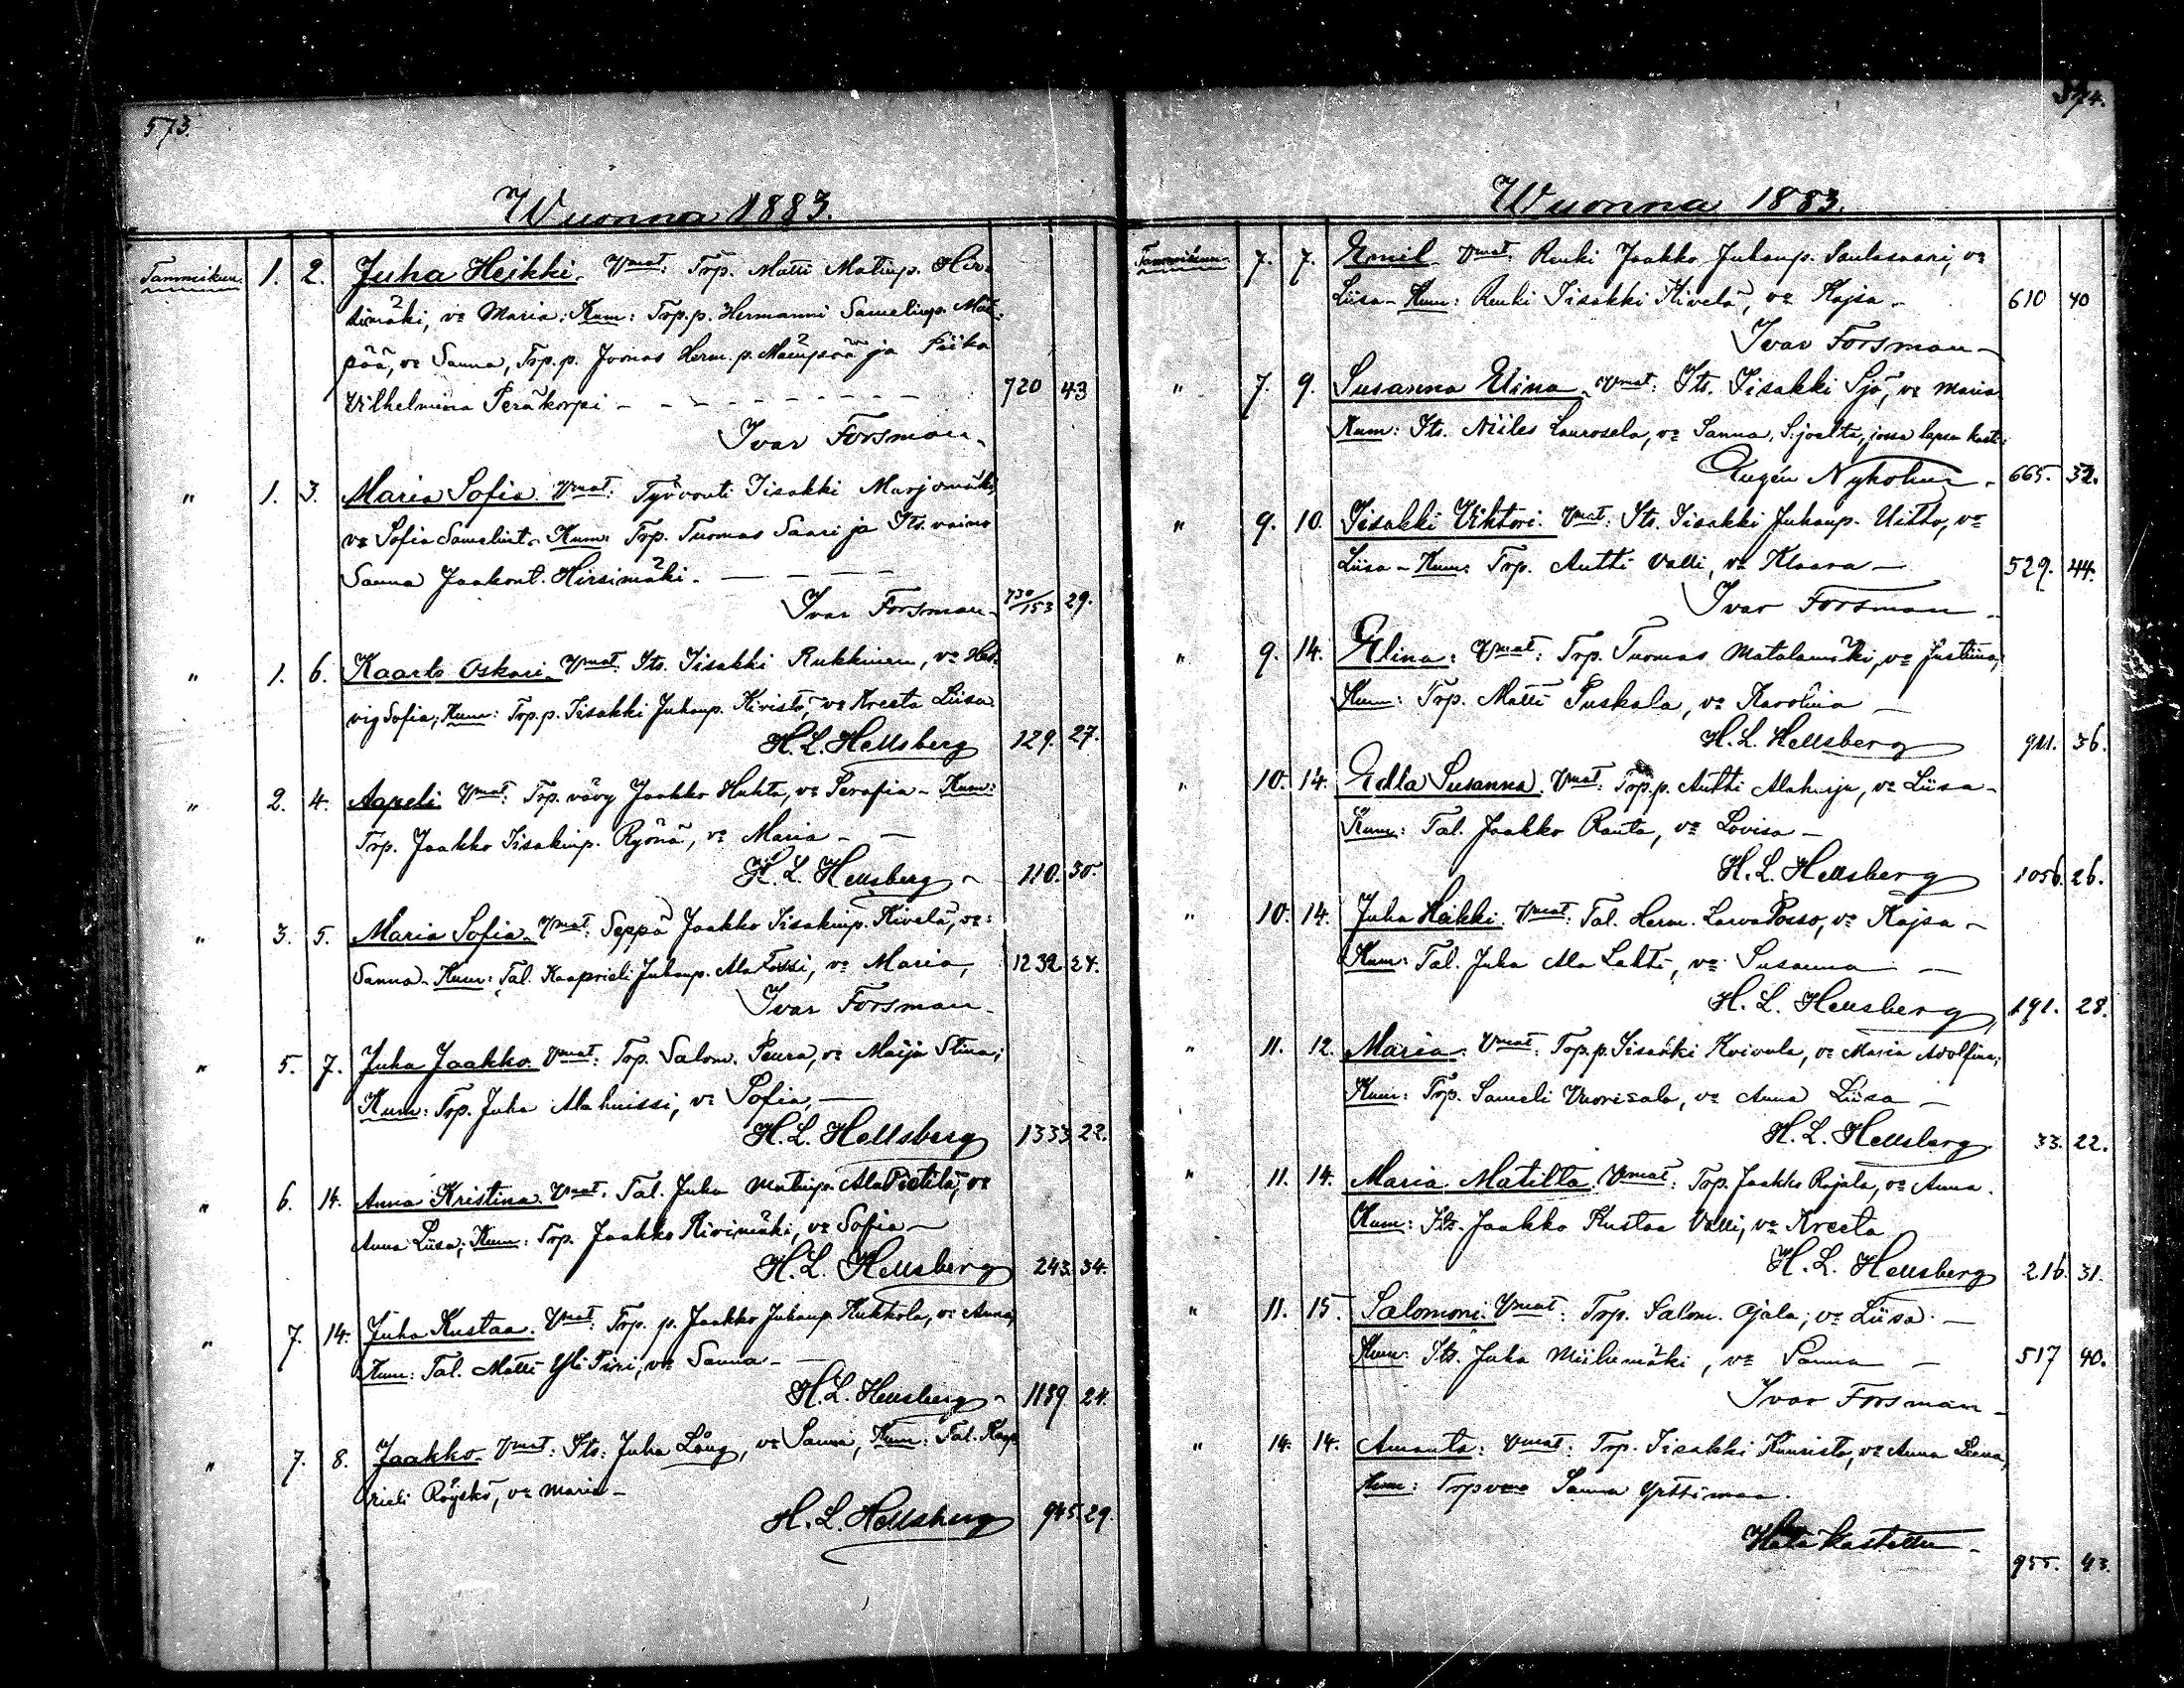 573.
Wuonna 1883.
Tammikuu. 1. 2. Juha Heikki. Vmat: Trp. Matti Matinp. Hir-
simäki, vo Maria: Kum: Trp.p. Hermanni Samelinp. Mäi-
pää, vo Sanna, Trp.p. Joonas Herm.p. Mäenpää ja Piika
Wilhelmina Peräkorpi - 720 43
Ivar Forsman.
" 1. 3. Maria Sofia. Vmat: Työvouti Iisakki Marjomäki,
vo Sofia Samelint. Kum: Trp. Tuomas Saari ja Its. vaimo
Sanna Jaakont. Hirsimäki. -
Ivar Forsman - 730/153 29.
" 1. 6. Kaarlo Oskari. Vmat. Its. Iisakki Rukkinen, vo Hed-
vig Sofia; Kum: Trp.p. Iisakki Juhanp. Kivistö, vo Kreeta Liisa
H. L. Hellsberg 129. 27.
" 2. 4. Aapeli Vmat: Trp. vävy Jaakko Huhta, vo Serafia - Kum:
Trp. Jaakko Iisakinp. Ryönä, vo Maria -
H. L. Hellsberg - 110. 30.
" 3. 5. Maria Sofia. Vmat: Seppä Jaakko Iisakinp. Kivelä, vo:
Sanna. Kum: Tal. Kaaprieli Juhanp. Ala Fossi, vo Maria, 1232 24.
Ivar Forsman.
" 5. 7. Juha Jaakko. Vmat: Trp. Salom. Peura, vo Maija Stina;
Kum: Trp. Juha Alahuissi, vo Sofia, -
H. L. Hellsberg 1333 22.
" 6. 14. Anna Kristina. Vmat. Tal. Juha Matinp. Ala Pietilä, vo
Anna Liisa; Kum: Trp. Jaakko Kivimäki, vo Sofia -
H. L. Hellsberg 243. 34.
" 7. 14. Juha Kustaa. Vmat: Trp. p. Jaakko Juhanp. Kukkola, vo Anna,
Kum: Tal. Matti Yli Tiri, vo Sanna -
H. L. Hellsberg - 1189 24.
" 7. 8. Jaakko. Vmat: Its: Juha Lång, vo Sanna, Kum: Tal. Kaap-
rieli Röyskö, vo Maria -
H. L. Hellsberg 945. 29.
574.
Wuonna 1883.
Tammikuu. 7. 7. Emil. Vmat. Renki Jaakko Juhanp. Saulasaari, vo
Liisa - Kum: Renki Iisakki Kivelä, vo Kajsa - 610 40
Ivar Forsman -
" 7. 9. Susanna Elina. Vmat: Its. Iisakki Sjö, vo Maria
Kum: Its. Niiles Laurosela, vo Sanna, S:joelta, jossa lapsen kast:
Eugén Nyholm. 665. 32.
" 9. 10. Iisakki Vihtori. Vmat: Its. Iisakki Juhanp. Uitto, vo
Liisa - Kum: Trp. Antti Valli, vo Klaara - 529. 44.
Ivar Forsman
" 9. 14. Elina: Vmat: Trp. Tuomas Matalamäki, vo Justiina;
Kum: Trp. Matti Puskala, vo Karoliina -
H. L. Hellsberg 911. 36.
" 10. 14. Edla Susanna. Vmat: Trp.p. Antti Alaharja, vo Liisa -
Kum: Tal. Jaakko Ranta, vo Lovisa -
H. L. Hellsberg 1056. 26.
" 10. 14. Juha Heikki. Vmat: Tal. Herm. Larva Posso, vo Kajsa -
Kum: Tal. Juha Ala Lahti, vo Susanna -
H. L. Hellsberg, 191. 28.
" 11. 12. Maria. Vmat: Trp.p. Iisakki Koivula, vo Maria Adolfina,
Kum: Trp. Sameli Vuorisalo, vo Anna Liisa -
H. L. Hellsberg 33. 22.
" 11. 14. Maria Matilta. Vmat: Trp. Jaakko Rajala, vo Anna.
Kum: Its. Jaakko Kustaa Valli, vo Kreeta
H. L. Hellsberg 216. 31.
" 11. 15. Salomoni. Vmat: Trp. Salom. Ojala; vo Liisa. -
Kum: Its. Juha Miihemäki, vo Sanna - 517 40.
Ivar Forsman -
" 14. 14. Amanta: Vmat: Trp. Iisakki Kuuristo, vo Anna Leena,
Kum: Trpvmo Sanna Yrttimaa.
Hätä kastettu -
955. 43.